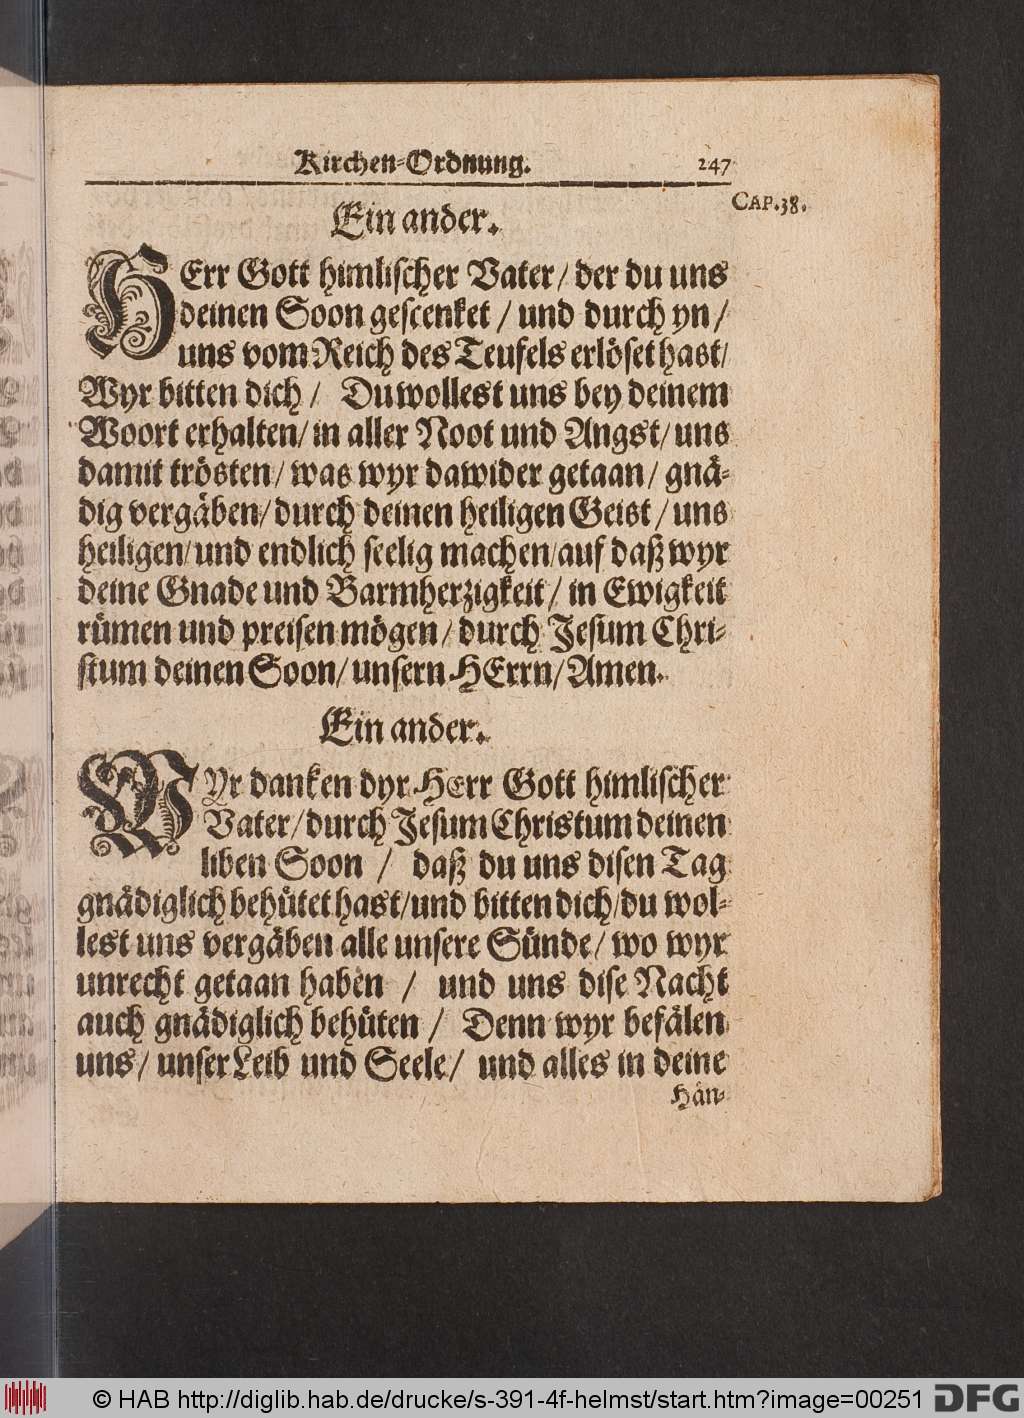 Kirchen-Ordnung. 247
CAP.38.
Ein ander.
HErr Gott himlischer Vater/ der du uns
deinen Soon gescenket / und durch yn /
uns vom Reich des Teufels erlöset hast/
Wyr bitten dich / Du wollest uns bey deinem
Woort erhalten/ in aller Noot und Angst/ uns
damit trösten/ was wyr dawider getaan/ gnä-
dig vergäben/ durch deinen heiligen Geist / uns
heiligen/ und endlich seelig machen/ auf daß wyr
deine Gnade und Barmherzigkeit / in Ewigkeit
rümen und preisen mögen / durch Jesum Chri-
stum deinen Soon/ unsern HErrn/ Amen.
Ein ander.
WYr danken dyr HErr Gott himlischer
Vater/ durch Jesum Christum deinen
liben Soon / daß du uns disen Tag
gnädiglich behütet hast/ und bitten dich/ du wol-
lest uns vergäben alle unsere Sünde/ wo wyr
unrecht getaan haben / und uns dise Nacht
auch gnädiglich behüten / Denn wyr befälen
uns/ unser Leib und Seele/ und alles in deine
Hän-
© HAB http://diglib.hab.de/drucke/s-391-4f-helmst/start.htm?image=00251
DFG